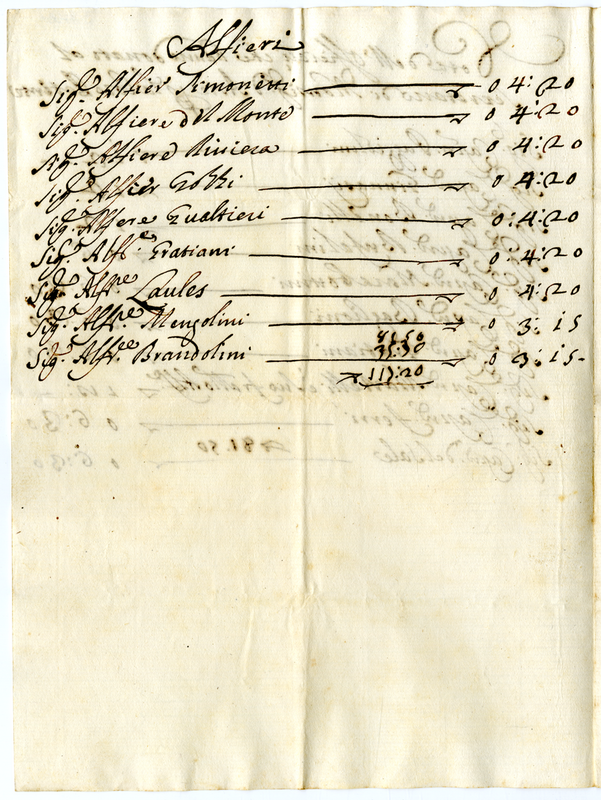 Alfieri
Sig.r Alfier Simonetti 0 4:20
Sig.r Alfiere del Monte 0 4:20
Sig.r Alfiere Riviera 0 4:20
Sig.r Alfier Gozzi 0 4:20
Sig.r Alfiere Gualtieri 0:4:20
Sig.r Alf.e Gratiani 0:4:20
Sig.r Alf.re Laules 0 4:20
Sig.r Alf.re Mengolini 0 3:15
81.50
Sig.r Alf.re Brandolini 0 3:15
35:50
117:20